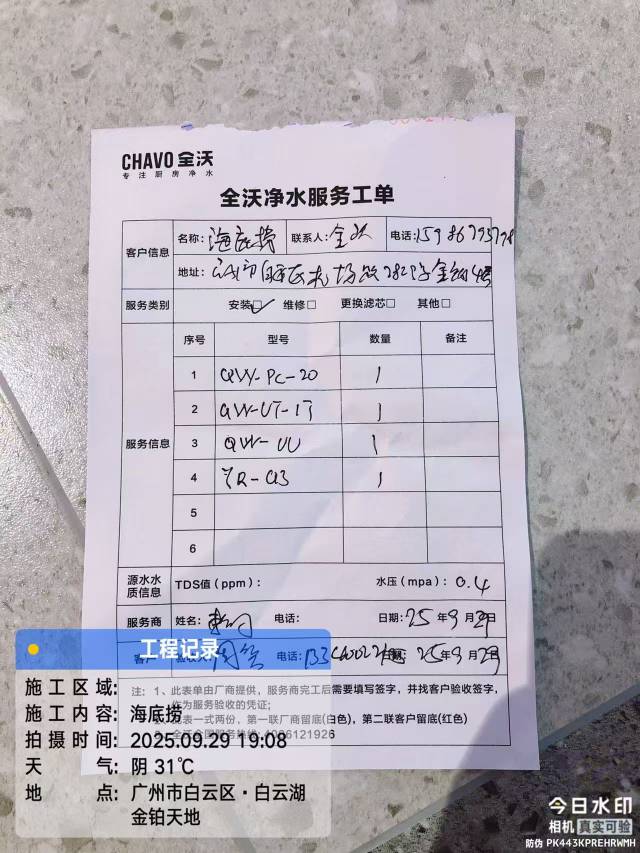 CHAVO 全沃
专注厨房净水
全沃净水服务工单
客户信息
名称: 海底捞 联系人: 全沃 电话: 15986795798
地址:
服务类别 安装□✓ 维修□ 更换滤芯□ 其他□
服务信息
序号 型号 数量 备注
1 QW-PC-20 1
2 QW-UT-1T 1
3 QW-UU 1
4 YR-Q3 1
5
6
源水水质信息 TDS值 (ppm): 水压 (mpa): 0.4
服务商 姓名: 电话: 日期: 25 年 9 月 29 日
客户 验收人: 电话: 25 年 9 月 29
注: 1、此表单由厂商提供,服务商完工后需要填写签字,并找客户验收签字,
作为服务验收的凭证;
此表一式两份,第一联厂商留底(白色),第二联客户留底(红色)
全沃全国服务热线: 4006121926
工程记录
施工区域:
施工内容: 海底捞
拍摄时间: 2025.09.29 19:08
天 气: 阴 31℃
地 点: 广州市白云区·白云湖
金铂天地
今日水印
相机 真实可验
防伪 PK443KPREHRWMH